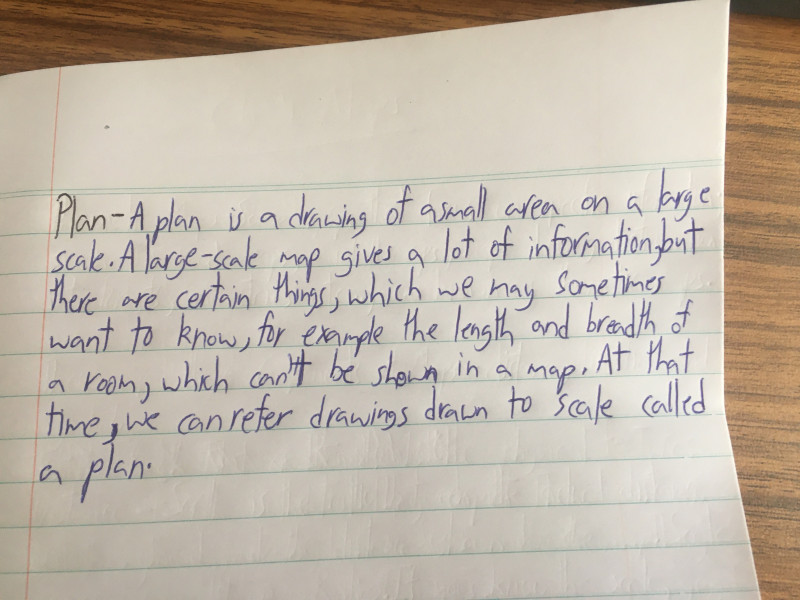 Plan-A plan is a drawing of a small area on a large
scale. A large-scale map gives a lot of information, but
there are certain things, which we may sometimes
want to know, for example the length and breadth of
a room, which can't be shown in a map. At that
time, we can refer drawings drawn to scale called
a plan.